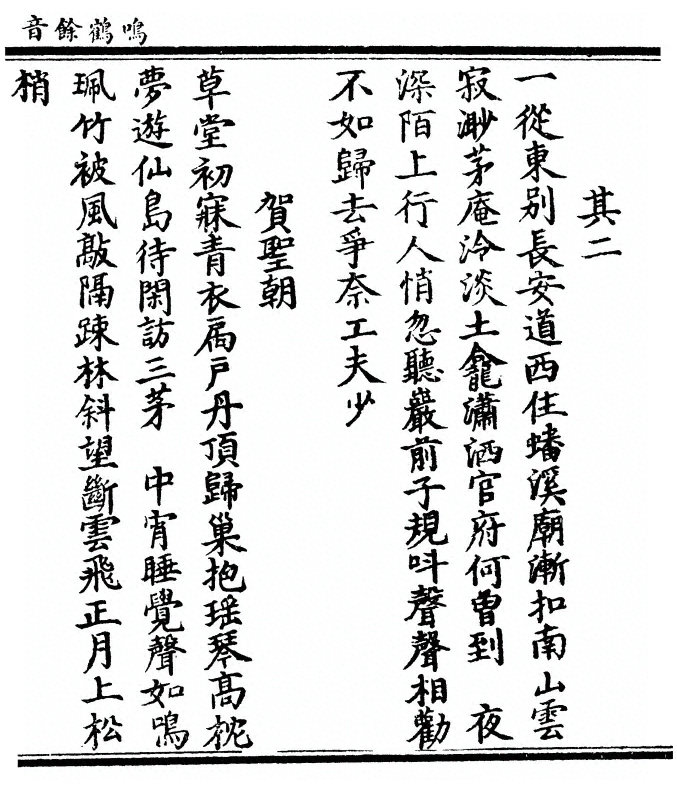 鳴鶴餘音
其二
一從東别長安道西住蟠溪廟漸扣南山雲
寂渺茅庵泠淡土龕瀟洒官府何曾到　夜
深陌上行人悄忽聽巖前子規呌聲聲相勸
不如歸去爭奈工夫少
賀聖朝
草堂初寐青衣扄戸丹頂歸巢抱瑶琴高枕
夢遊仙島待閑訪三茅　中宵睡覺聲如鳴
珮竹被風敲隔踈林斜望斷雲飛正月上松
梢